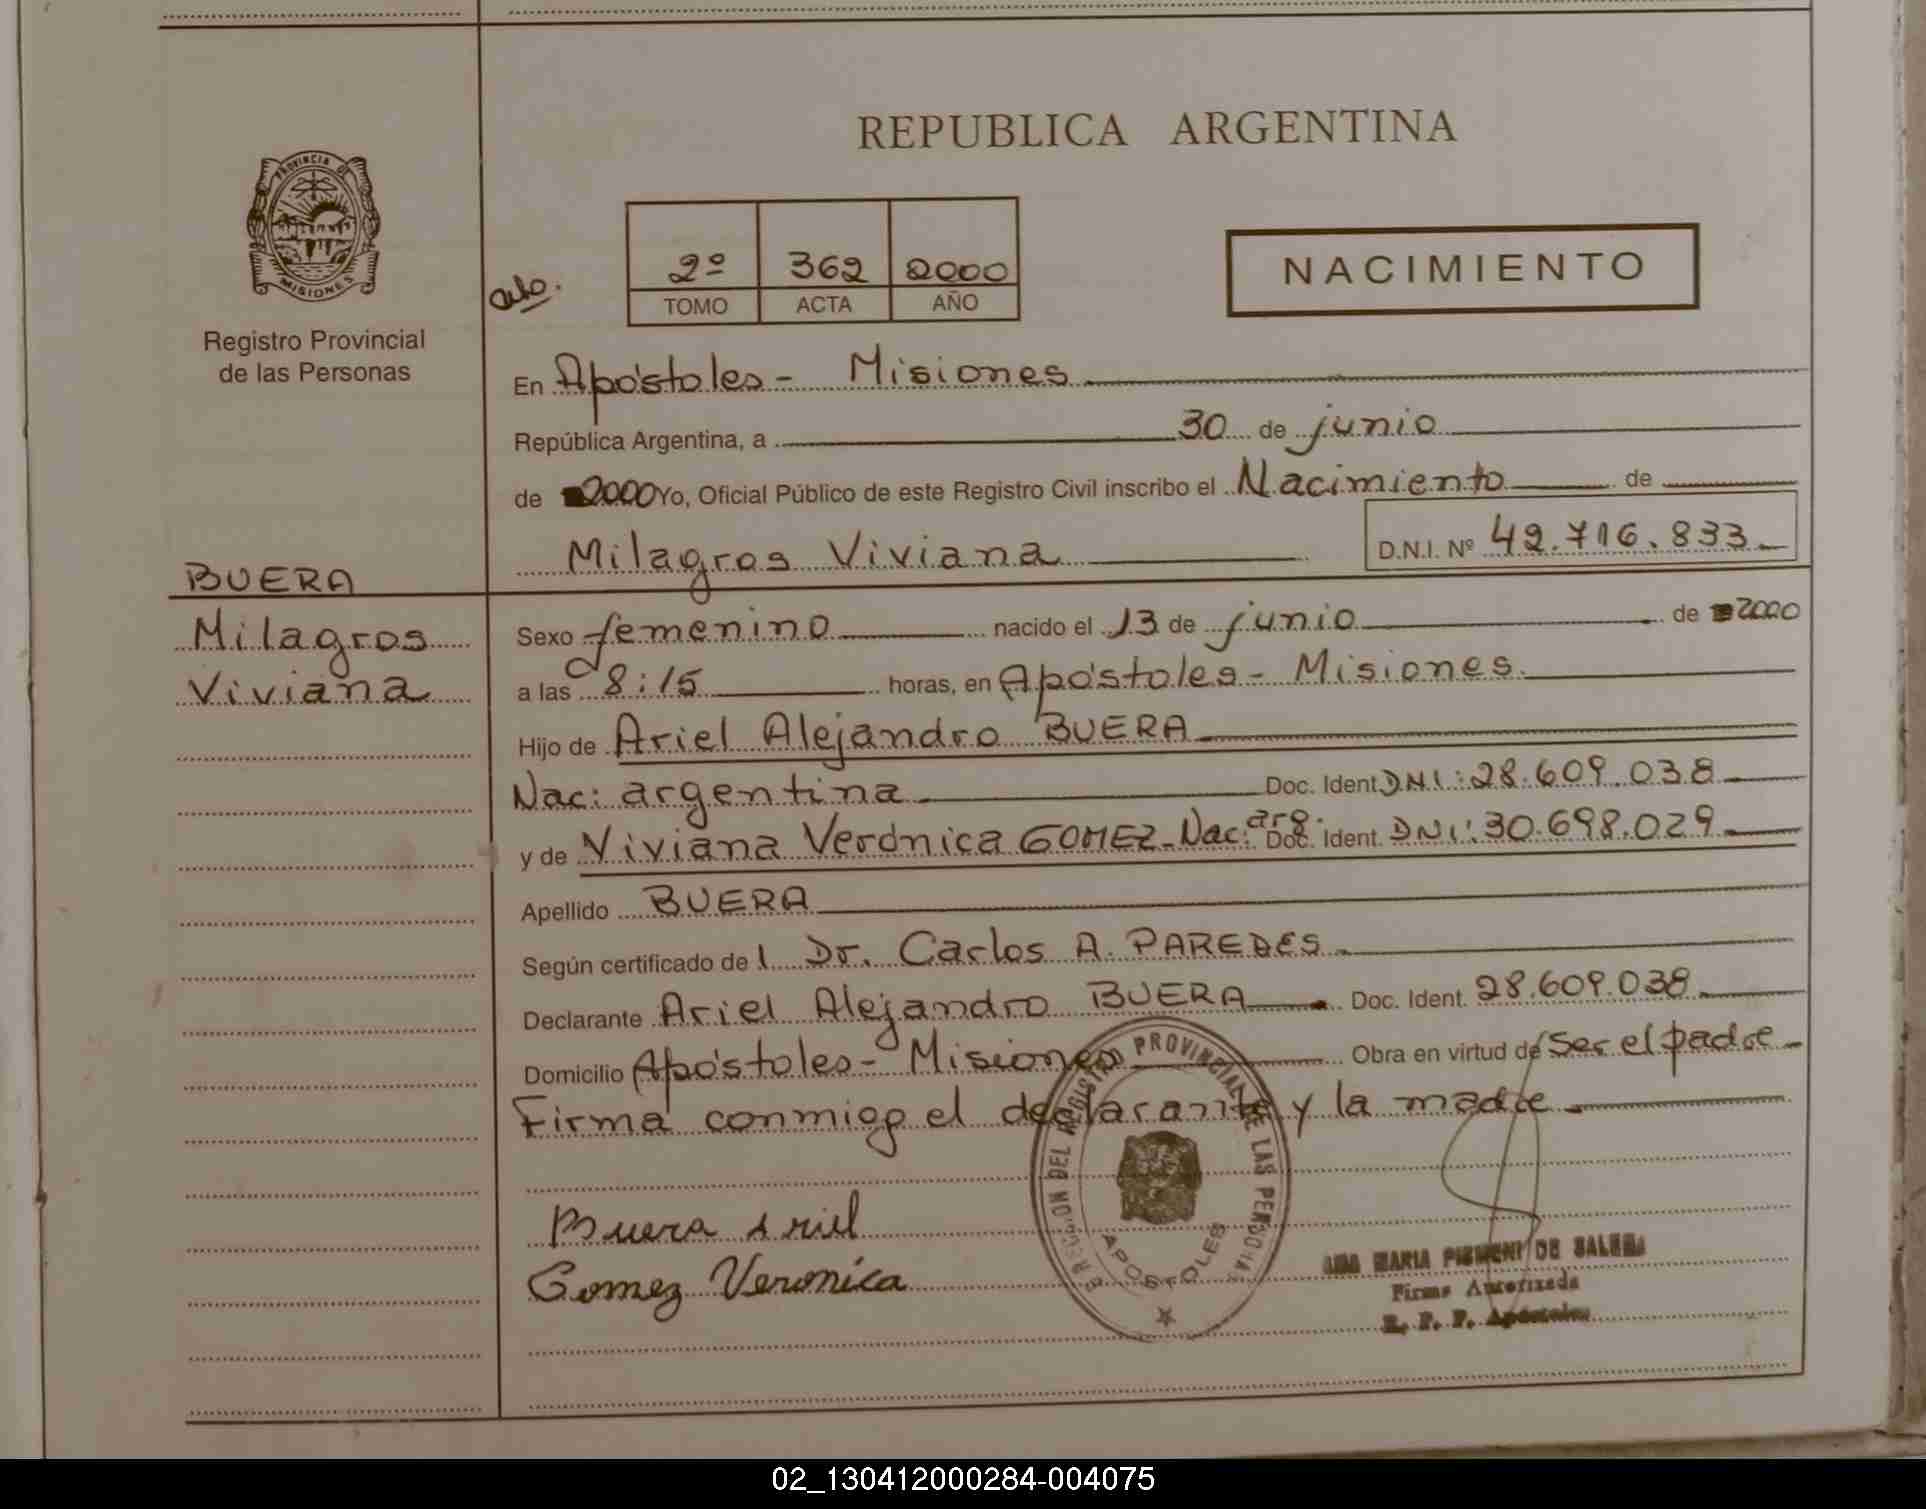 REPUBLICA ARGENTINA
PROVINCIA DE
MISIONES
Registro Provincial
de las Personas
2º 362 2000
TOMO ACTA AÑO
NACIMIENTO
En Apóstoles - Misiones
República Argentina, a 30 de junio
de 2000 Yo, Oficial Público de este Registro Civil inscribo el Nacimiento de
Milagros Viviana D.N.I. Nº 42.716.833
BUERA
Milagros
Viviana
Sexo femenino nacido el 13 de junio de 2000
a las 8:15 horas, en Apóstoles - Misiones.
Hijo de Ariel Alejandro BUERA
Nac: argentina Doc. Ident DNI: 28.609.038
y de Viviana Verónica GOMEZ - Nac: arg. Doc. Ident. DNI: 30.698.029
Apellido BUERA
Según certificado de l Dr. Carlos A. PAREDES
Declarante Ariel Alejandro BUERA Doc. Ident. 28.609.038
Domicilio Apóstoles - Misiones Obra en virtud de ser el padre
Firma conmigo el declarante y la madre
Buera Ariel
Gomez Veronica
DIRECCION DEL REGISTRO PROVINCIAL DE LAS PERSONAS
APOSTOLES
MARIA DE
Firma Autorizada
R. P. P. Apóstoles
02_130412000284-004075